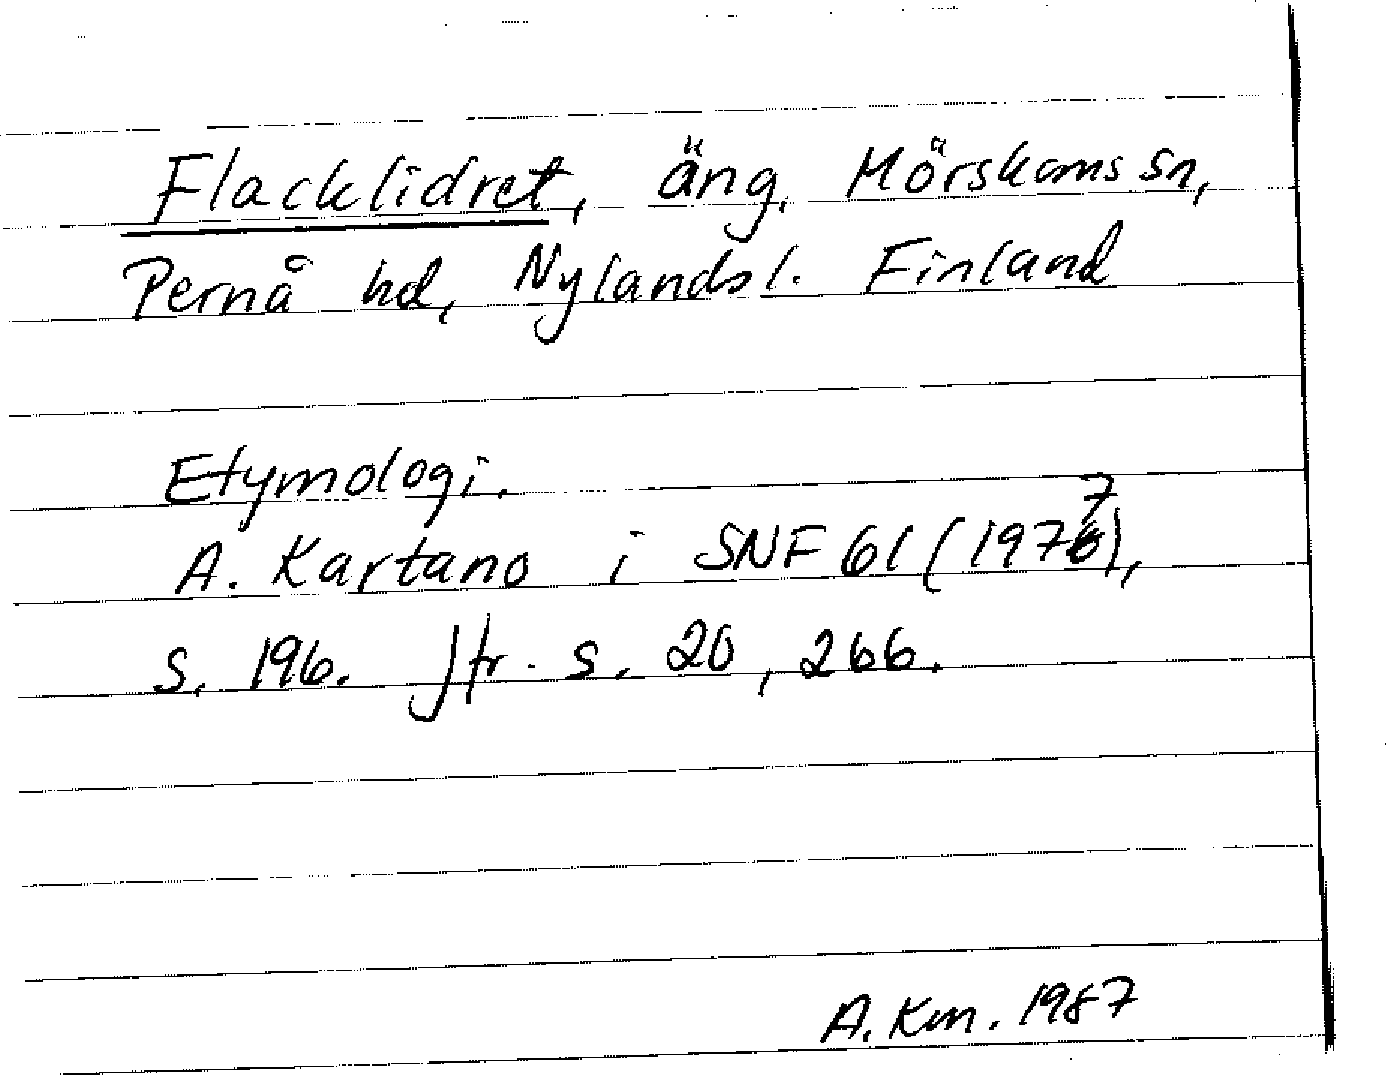 Flacklidret, äng, Mörskoms sn,
Pernå hd, Nylands l. Finland
Etymologi.
A. Kartano i SNF 61 (1977),
s. 196. Jfr. s. 20, 266.
A. Km. 1987